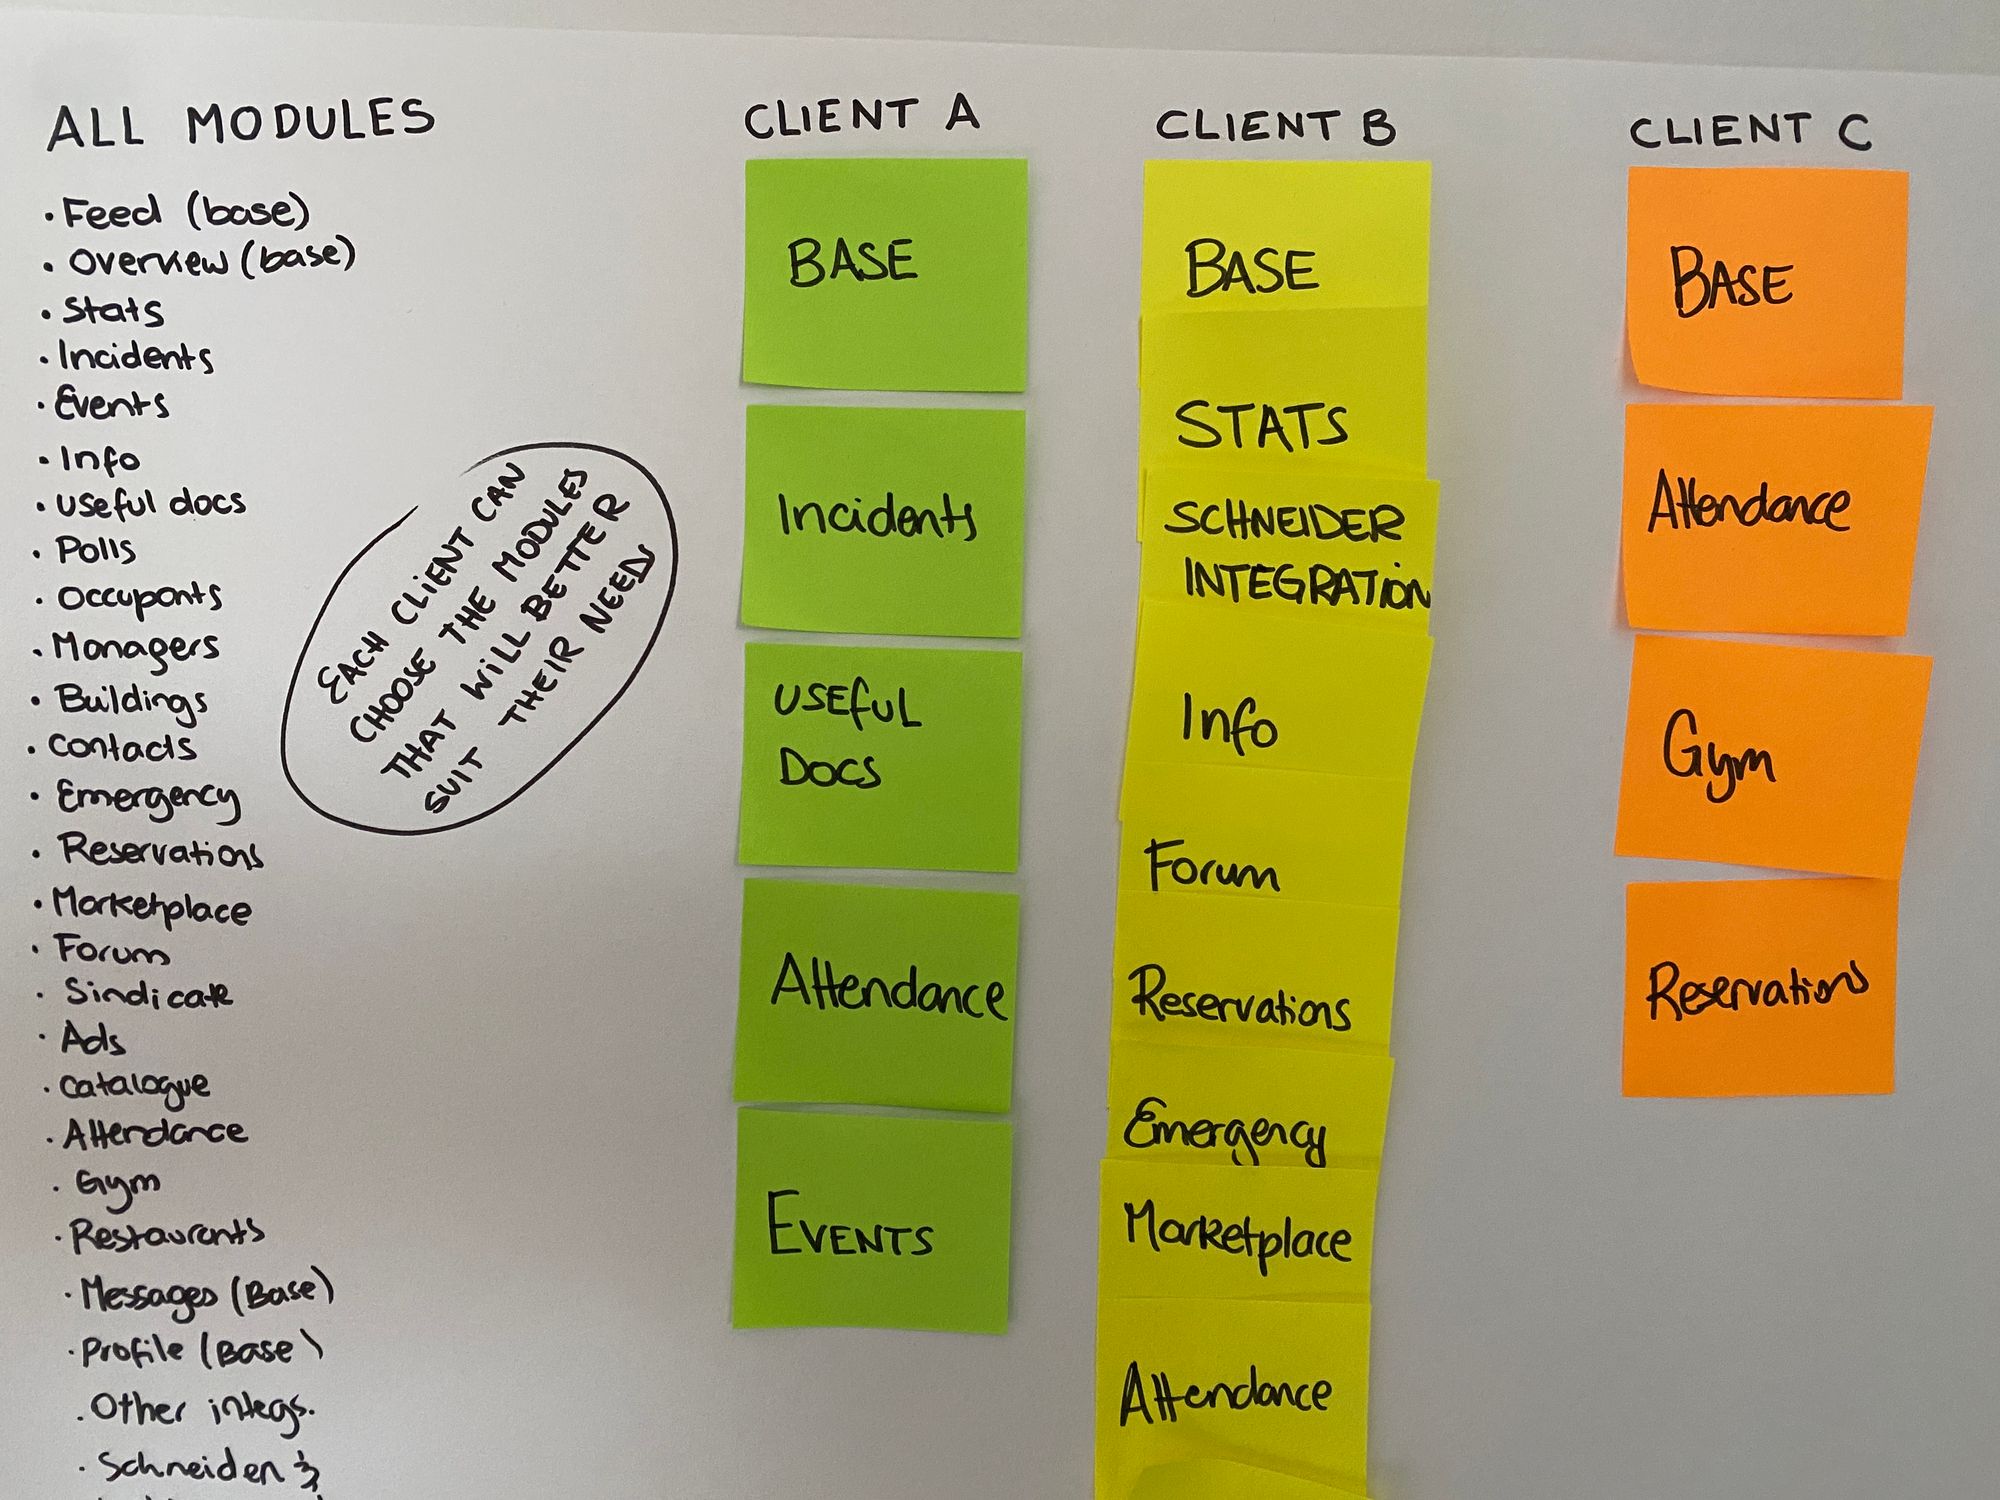 ALL MODULES
• Feed (base)
• Overview (base)
• Stats
• Incidents
• Events
• Info
• Useful docs
• Polls
• Occupants
• Managers
• Buildings
• Contacts
• Emergency
• Reservations
• Marketplace
• Forum
• Sindicate
• Ads
• Catalogue
• Attendance
• Gym
• Restaurants
• Messages (Base)
• Profile (Base)
• Other integs.
• Schneiden
EACH CLIENT CAN
CHOOSE THE MODULES
THAT WILL BETTER
SUIT THEIR NEED
CLIENT A
BASE
Incidents
USEFUL
DOCS
Attendance
EVENTS
CLIENT B
BASE
STATS
SCHNEIDER
INTEGRATION
Info
Forum
Reservations
Emergency
Marketplace
Attendance
CLIENT C
BASE
Attendance
Gym
Reservations